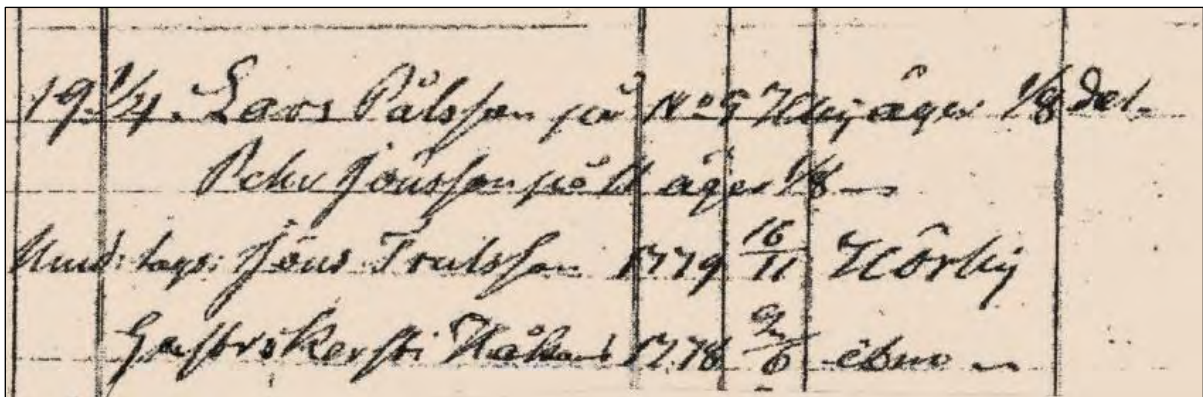 19. 1/4. Lars Pålsson på No 9 äger 1/8 del.
Pehr Jönsson på äger 1/8
Und: tags: Jöns Trulsson 1779 16/11 Hörby
Hustr. Kersti Håkans 1778 9/6 ibm